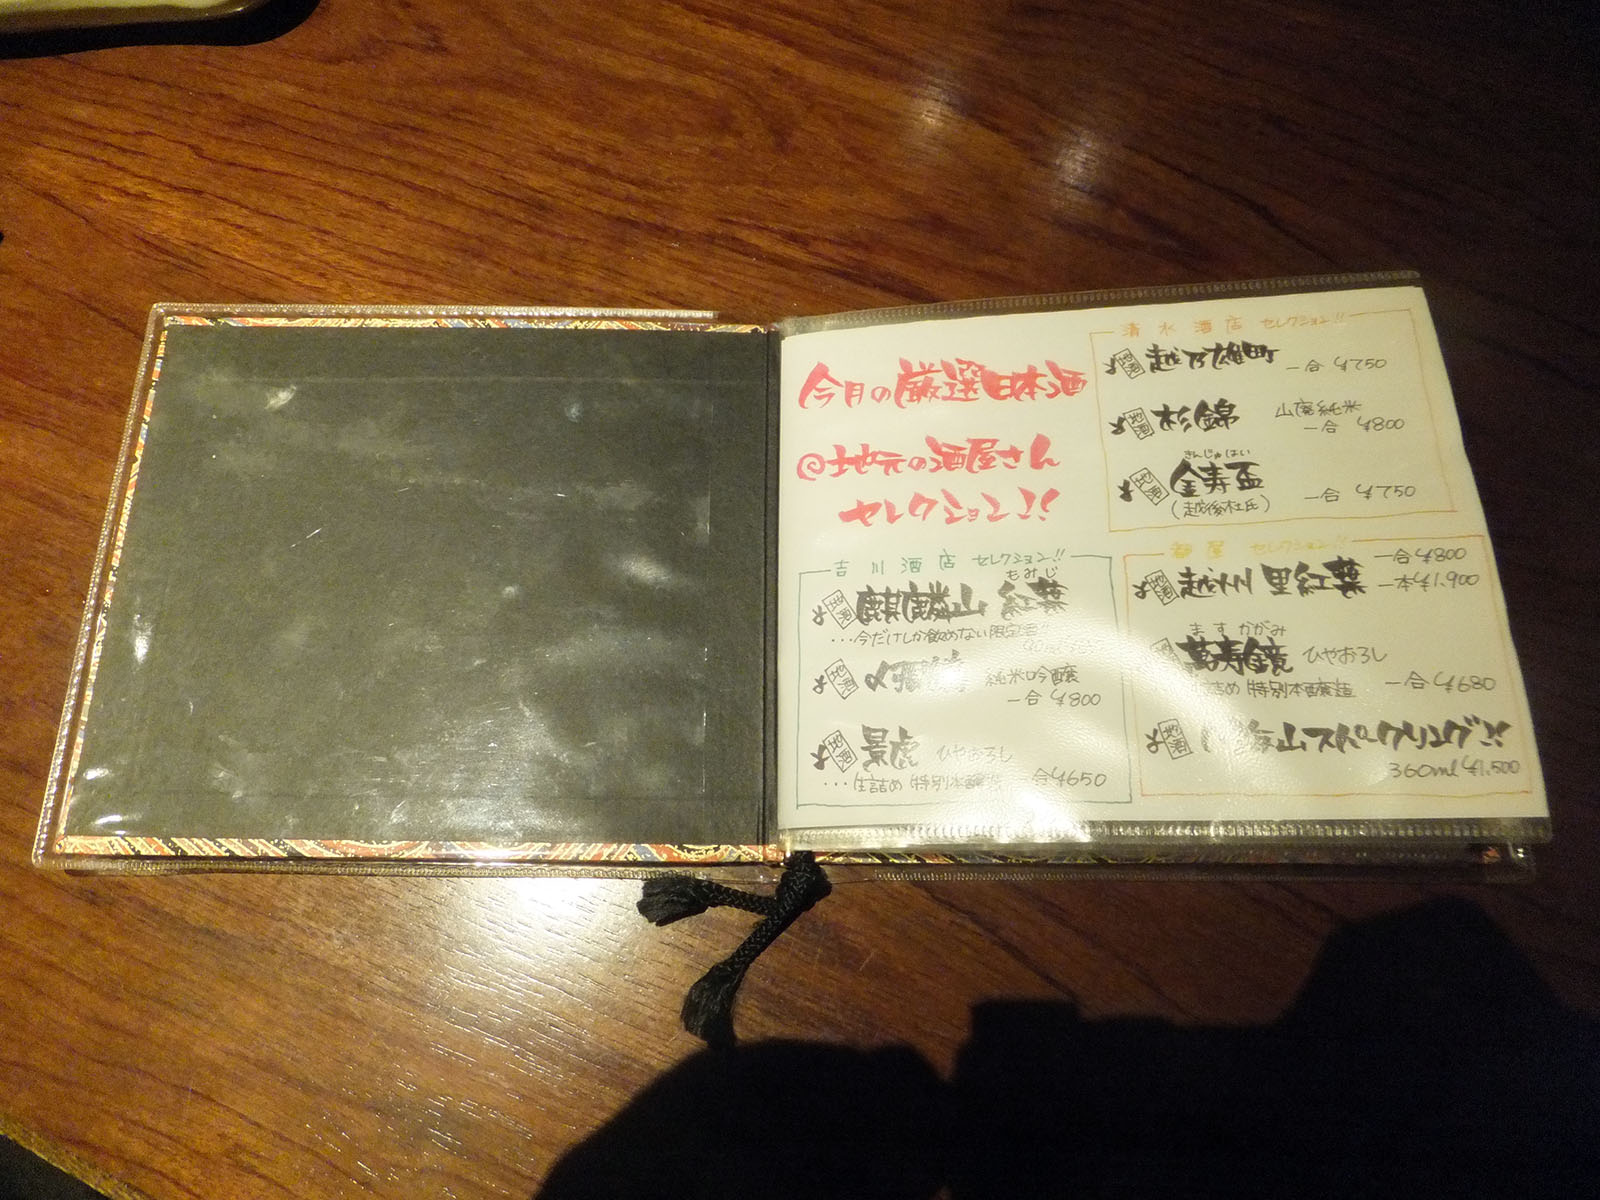 今月の厳選日本酒
@地元の酒屋さん
セレクション!!
吉川酒店 セレクション!!
もみじ
地酒 麒麟山 紅葉
・・・今だけしか飲めない限定酒
地酒 純米吟醸
一合 ¥800
地酒 景虎 ひやおろし
・・・生詰め 特別本醸造 一合 ¥650
清水酒店 セレクション!!
地酒 越乃雄町
一合 ¥750
地酒 杉錦 山廃純米
一合 ¥800
きんじゅはい
地酒 金寿盃 一合 ¥750
(越後杜氏)
セレクション!!
一合 ¥800
地酒 越州 里紅葉 一本 ¥1,900
ます かがみ
萬寿鏡 ひやおろし
生詰め 特別本醸造 一合 ¥680
地酒 山スパークリング!!
360ml ¥1,500